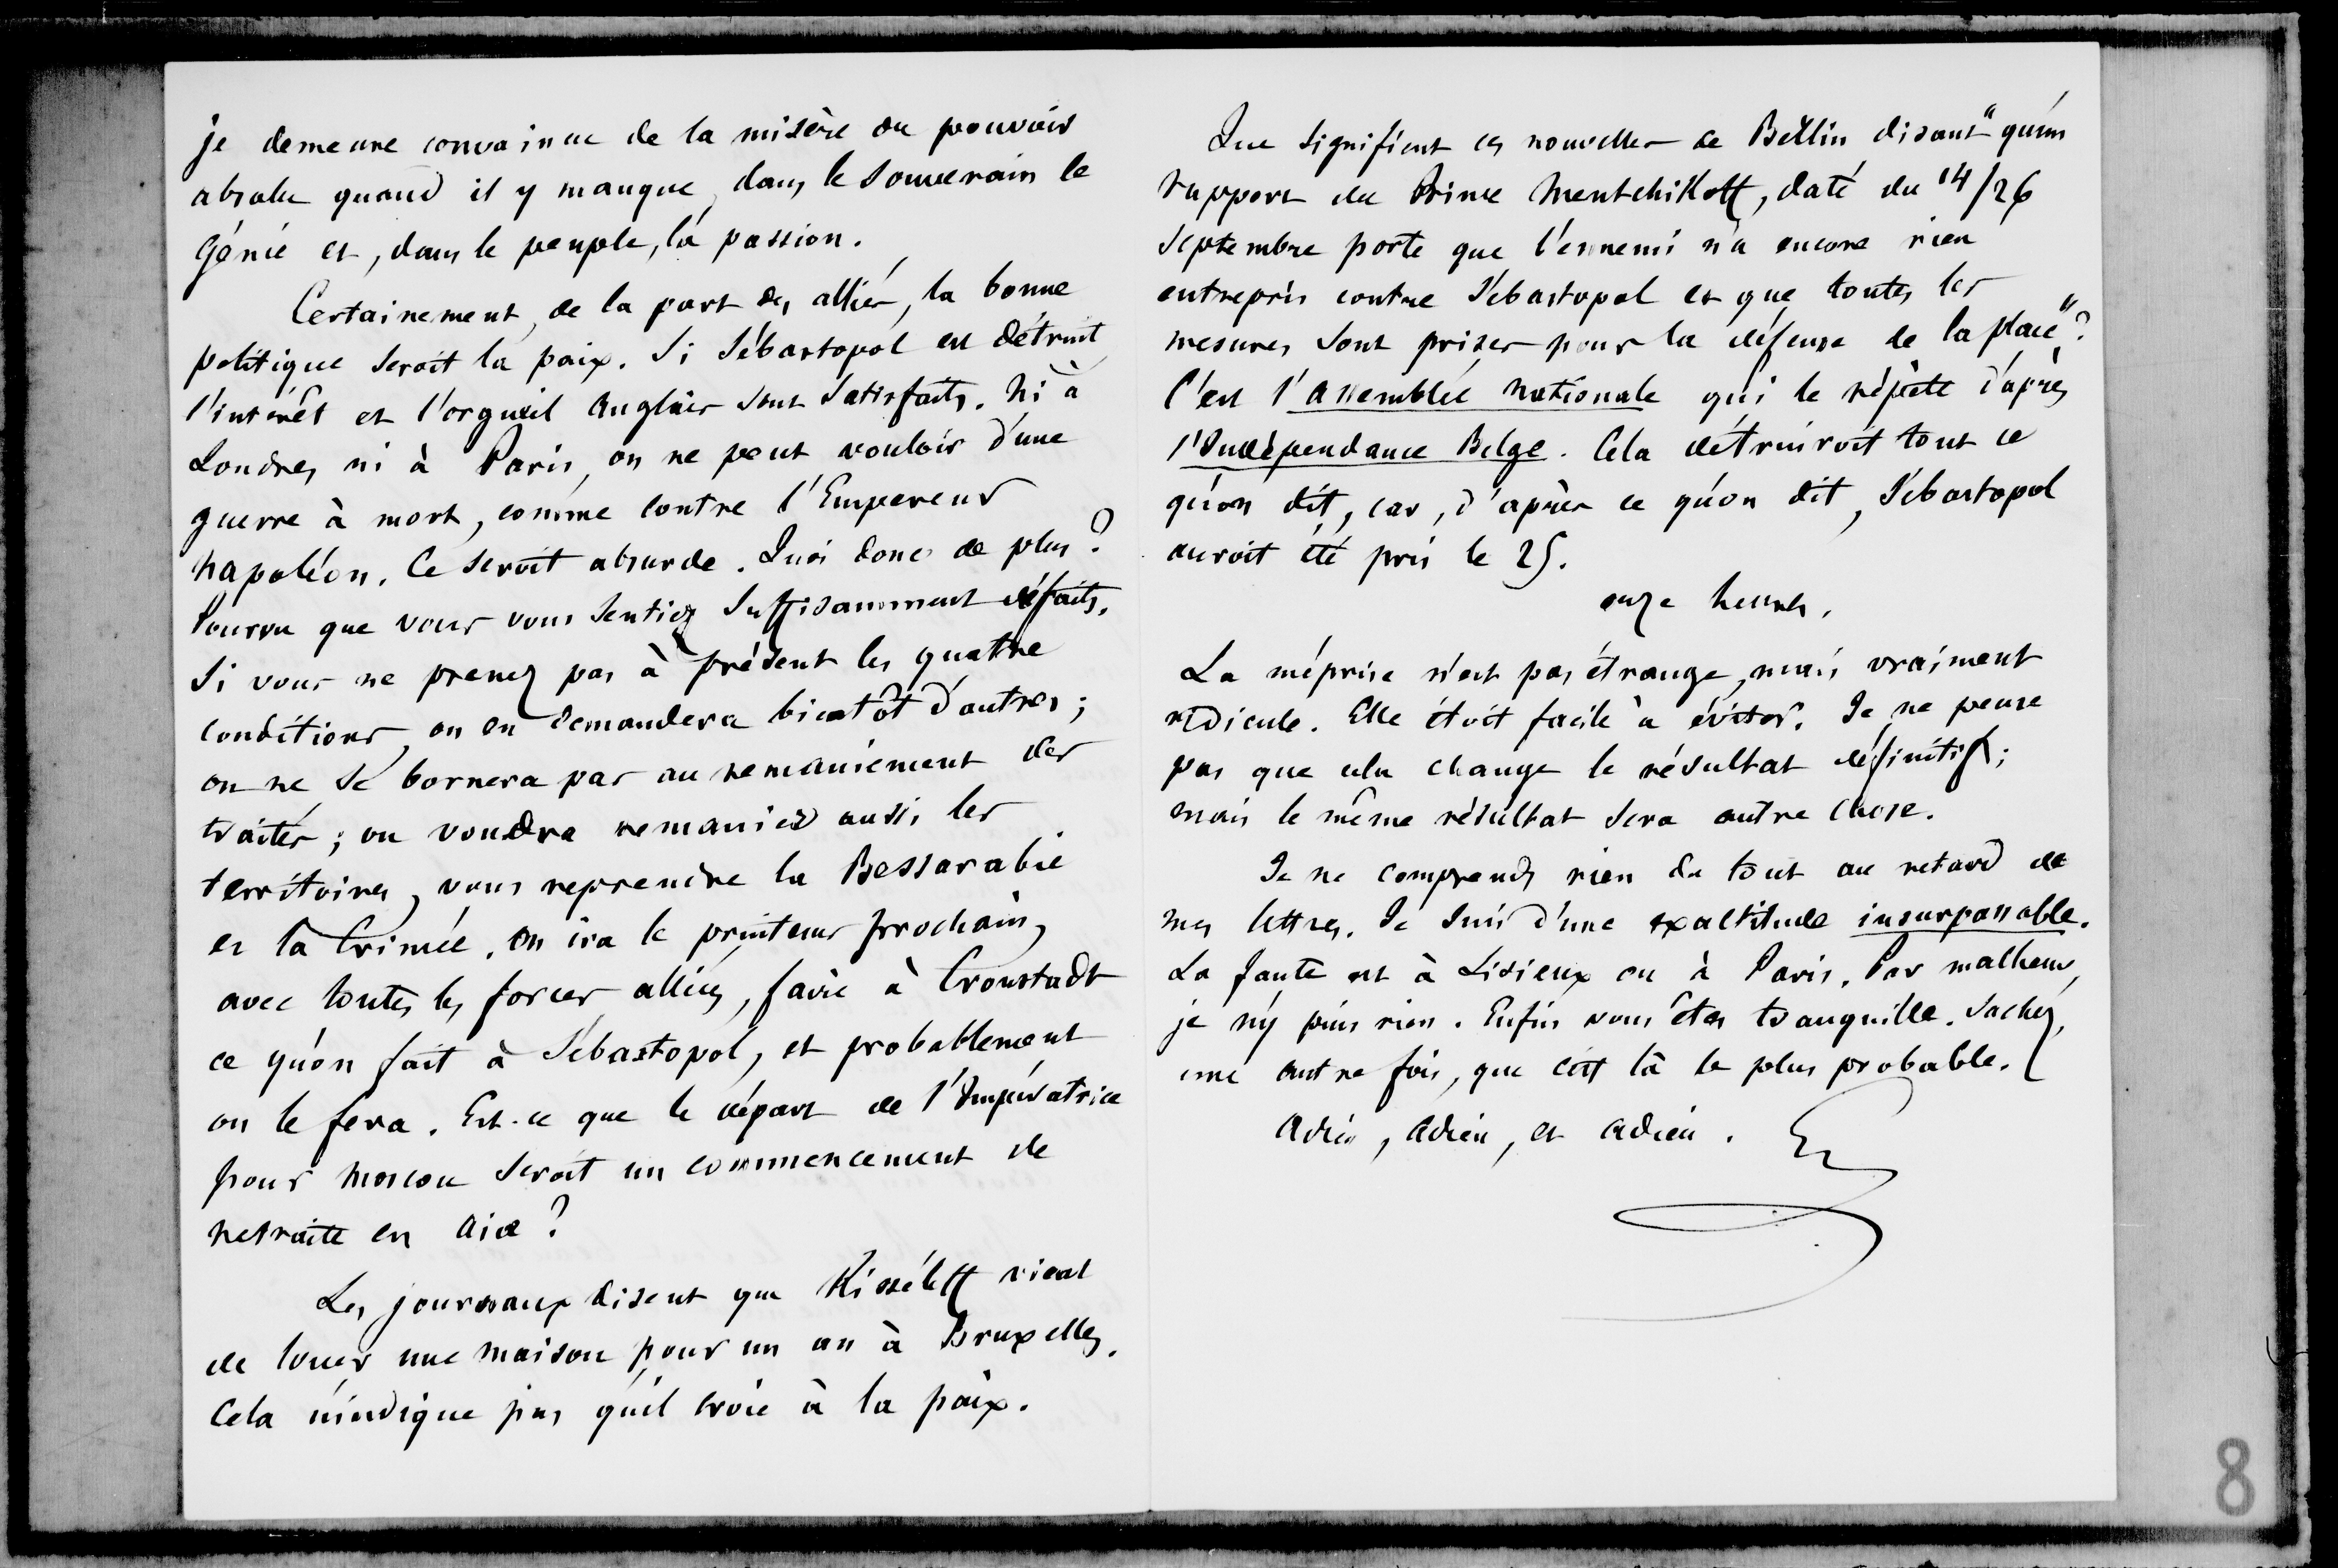 je demeure convaincu de la misère du pouvoir
absolu quand il y manque, dans le souverain le
génie et, dans le peuple, la passion.
Certainement, de la part des alliés, la bonne
politique seroit la paix. Si Sébastopol est détruit
l'intérêt et l'orgueil Anglais sont satisfaits. Ni à
Londres ni à Paris, on ne peut vouloir d'une
guerre à mort, comme contre l'Empereur
Napoléon. Ce seroit absurde. Quoi donc de plus ?
Pourvu que vous vous sentiez suffisamment défaits.
Si vous ne prenez pas à présent les quatre
conditions, on en demandera bientôt d'autres ;
on ne se bornera pas au remaniement des
traités ; on voudra remanier aussi les
territoires, vous reprendre la Bessarabie
et la Crimée. On ira le printems prochain,
avec toutes les forces alliées, faire à Cronstadt
ce qu'on fait à Sébastopol, et probablement
on le fera. Est-ce que le départ de l'Impératrice
pour Moscou seroit un commencement de
retraite en Asie ?
Les journaux disent que Kisséleff vient
de louer une maison pour un an à Bruxelles.
Cela n'indique pas qu'il croie à la paix.
Que signifient ces nouvelles de Berlin disant "qu'un
rapport du Prince Mentchikoff, daté du 14/26
septembre porte que l'ennemi n'a encore rien
entrepris contre Sébastopol et que toutes les
mesures sont prises pour la défense de la place" ?
C'est l'Assemblée nationale qui le répète d'après
l'Indépendance Belge. Cela détruiroit tout ce
qu'on dit, car, d'après ce qu'on dit, Sébastopol
auroit été pris le 25.
onze heures.
La méprise n'est pas étrange, mais vraiment
ridicule. Elle étoit facile à éviter. Je ne pense
pas que cela change le résultat définitif ;
mais le même résultat sera autre chose.
Je ne comprends rien du tout au retard de
mes lettres. Je suis d'une exactitude insurpassable.
La faute est à Lisieux ou à Paris. Par malheur,
je n'y puis rien. Enfin vous êtes tranquille. Sachez,
une autre fois, que c'est là le plus probable.
Adieu, adieu, et adieu.